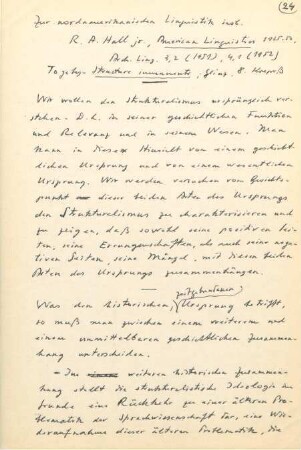 (24)
Zur nordamerikanischen Linguistik insb.
R. A. Hall jr., American Linguistics 1925-50.
Arch. Ling. 3,2 (1951), 4,1 (1952)
Structure immanente,
Wir wollen den Strukturalismus ursprünglich ver-
stehen. D.h. in seiner geschichtlichen Funktion
und Relevanz und in seinem Wesen. Man
kann in dieser Hinsicht von einem geschicht-
lichen Ursprung und von einem wesentlichen
Ursprung. Wir werden versuchen vom Gesichts-
punkt dieser beiden Arten des Ursprungs
den Strukturalismus zu charakterisieren und
zu zeigen, daß sowohl seine positiven Sei-
ten, seine Errungenschaften, als auch seine neg-
ativen Seiten, seine Mängel, mit diesen beiden
Arten des Ursprungs zusammenhängen.
Was den historischen, zeitgebundenen Ursprung betrifft,
so muß man zwischen einem weiteren und
einem unmittelbaren geschichtlichen Zusammen-
hang unterscheiden.
- Im weiteren historischen Zusammen-
hang stellt die strukturalistische Ideologie im
Grunde eine Rückkehr zu einer älteren Pro-
blematik der Sprachwissenschaft dar, eine Wie-
deraufnahme dieser älteren Problematik, die